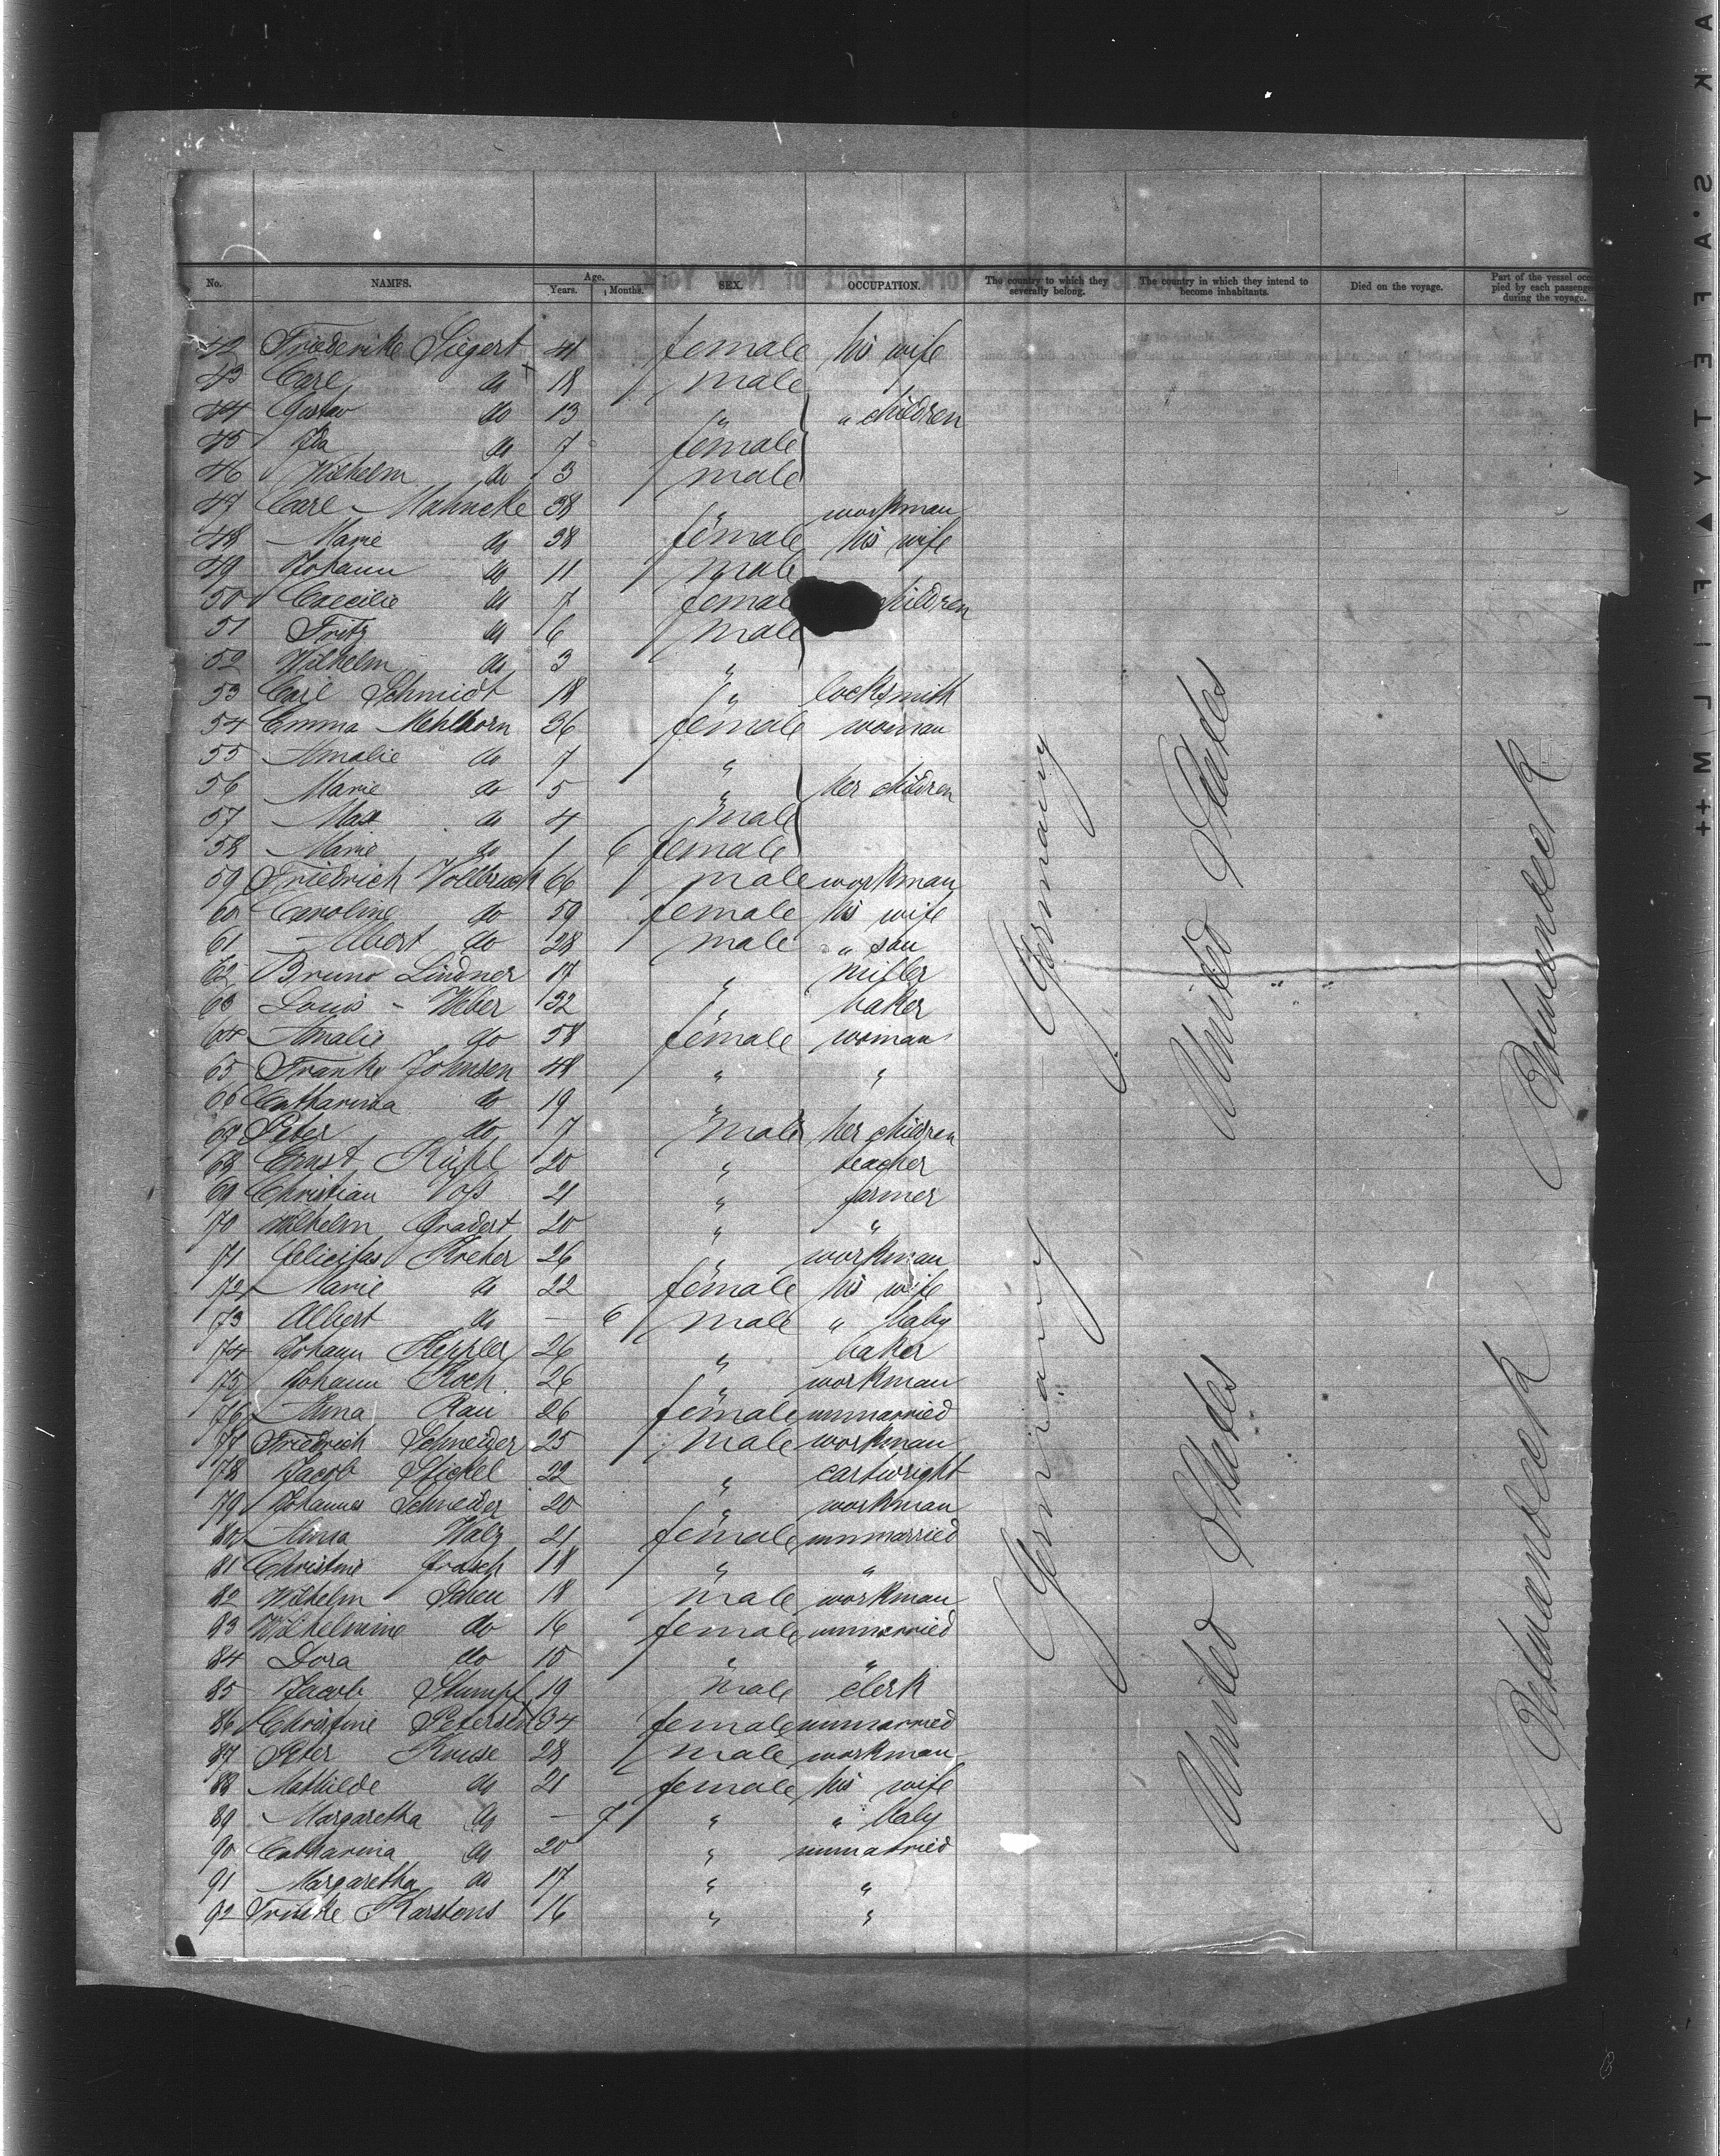 No. NAMES. Age. Years. Months. SEX. OCCUPATION. The country to which they severally belong. The country in which they intend to become inhabitants. Died on the voyage. Part of the vessel occupied by each passenger during the voyage.
42 Friederike Siegert 41 female his wife
43 Carl do 18 male
44 Gustav do 13 " " children
45 Ida do 7 female
46 Wilhelm do 3 male
47 Carl Mahncke 38 " workman
48 Marie do 38 female his wife
49 Johann do 11 male
50 Caecilie do 7 female children
51 Fritz do 6 male
52 Wilhelm do 3 "
53 Carl Schmidt 18 " locksmith
54 Emma Mehlhorn 36 female woman
55 Amalie do 7 "
56 Marie do 5 " her children
57 Max do 4 male
58 Marie do 1 6 female
59 Friedrich Vollbrecht 66 male workman
60 Caroline do 59 female his wife
61 Albert do 28 male " son
62 Bruno Lindner 17 " miller
63 Louis Weber 32 " baker
64 Amalie do 58 female woman
65 Franke Johnsen 48 " "
66 Catharina do 19 "
67 Peter do 7 male her children
68 Ernst Rühl 20 " teacher
69 Christian Voss 21 " farmer
70 Wilhelm Gradert 20 " "
71 Felicitas Kreher 26 " workman
72 Marie do 22 female his wife
73 Albert do — 6 male " baby
74 Johann Heppler 26 " baker
75 Johann Koch 26 " workman
76 Anna Rau 26 female unmarried
77 Friedrich Schneider 25 male workman
78 Jacob Stickel 22 " cartwright
79 Johannes Schneider 20 " workman
80 Anna Walz 21 female unmarried
81 Christine Frasch 18 " "
82 Wilhelm Scheu 18 male workman
83 Wilhelmine do 16 female unmarried
84 Dora do 15 " "
85 Jacob Stumpf 19 male clerk
86 Christine Petersen 34 female unmarried
87 Peter Kruse 28 male workman
88 Mathilde do 21 female his wife
89 Margaretha do — 7 " " baby
90 Catharina do 20 " unmarried
91 Margaretha do 17 " "
92 Karstens 16 " "
Germany
United States
Germany
United States